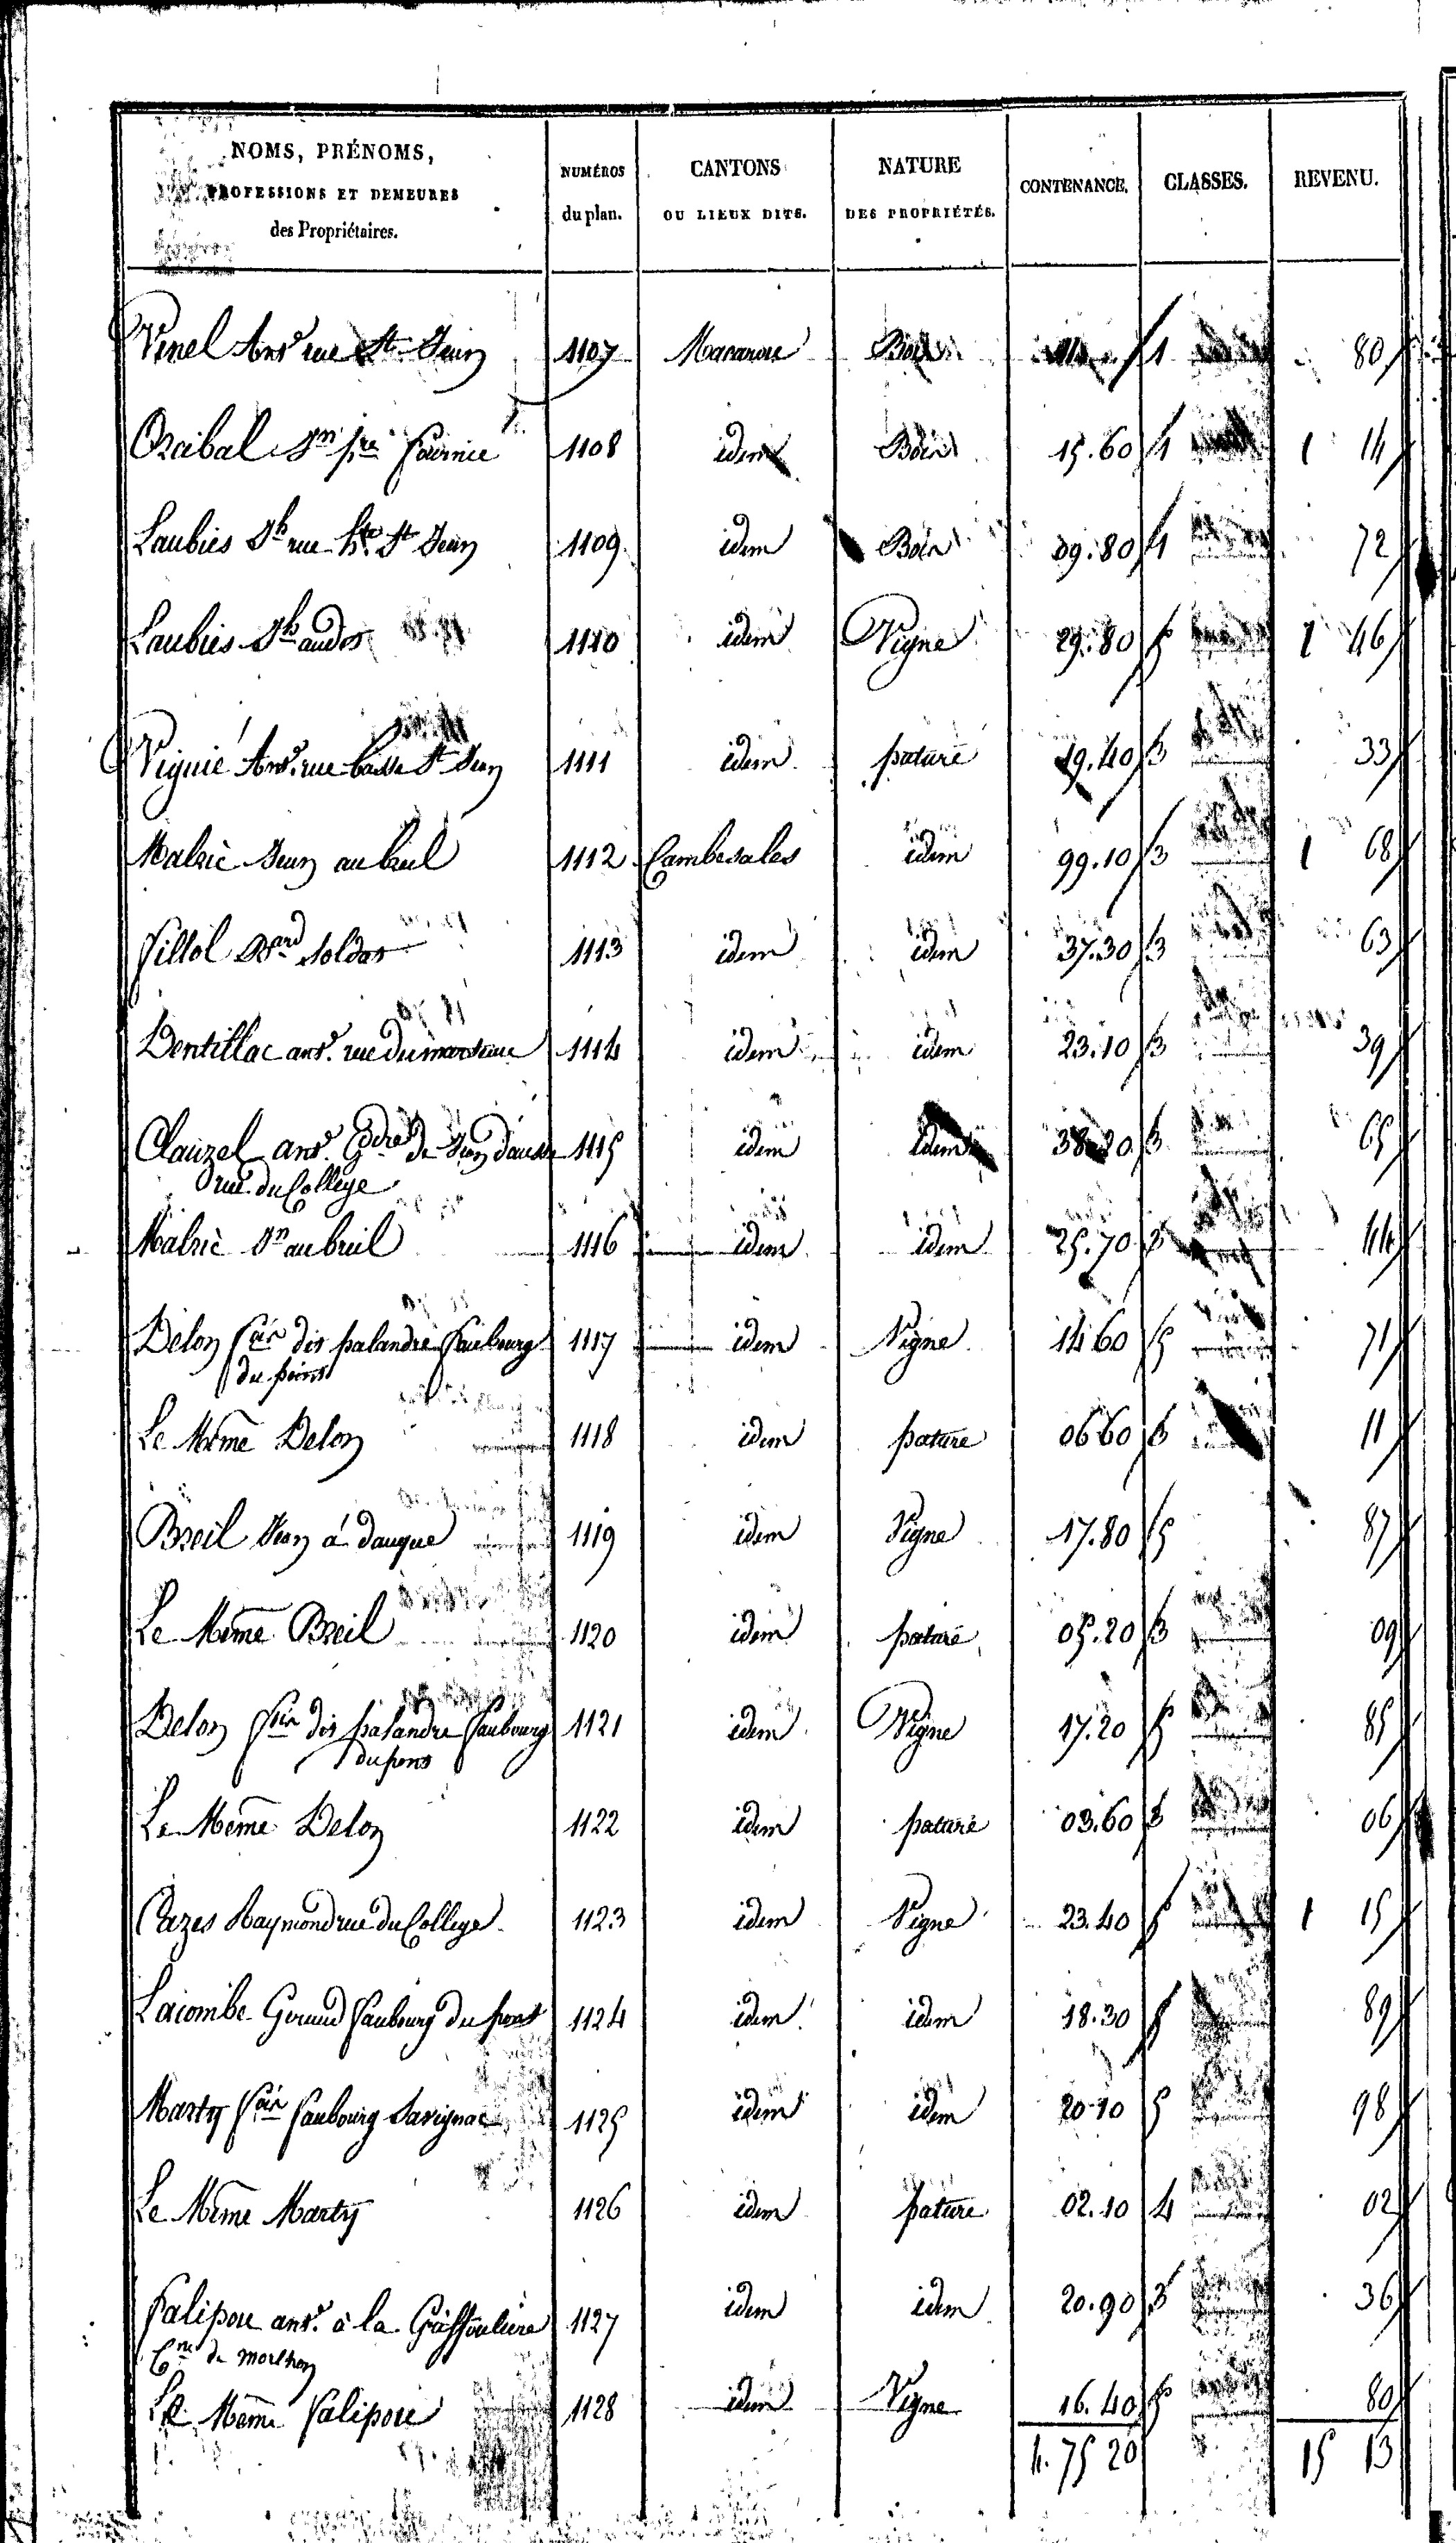 NOMS, PRÉNOMS,
PROFESSIONS ET DEMEURES
des Propriétaires.
NUMÉROS
du plan.
CANTONS
OU LIEUX DITS.
NATURE
DES PROPRIÉTÉS.
CONTENANCE.
CLASSES.
REVENU.
Vinel Ant. rue St Jean 1107 Macarou Bois 1 80
Orcibal Jn pre 1108 idem Bois 15.60 1 1 14
Laubies Jh rue hte St Jean 1109 idem Bois 09.80 1 72
Laubies Jh 1110 idem Vigne 29.80 5 1 46
Viguié Ant. rue basse St Jean 1111 idem pature 19.40 3 33
Malric Jean au breil 1112 Cambesales idem 99.10 3 1 68
Fillol Bard Soldat 1113 idem idem 37.30 3 63
Dentillac ant. rue du marteau 1114 idem idem 23.10 3 39
Clauzel ant. Gdre de Jean 1115 idem idem 38.20 3 65
rue du College
Malric Jn au breil 1116 idem idem 25.70 3 44
Delon fois dit palandre faubourg 1117 idem Vigne 14 60 5 71
du pont
Le Même Delon 1118 idem pature 06 60 3 11
Breil Jean à dauque 1119 idem Vigne 17.80 5 87
Le Même Breil 1120 idem pature 05.20 3 09
Delon fois dit palandre faubourg 1121 idem Vigne 17.20 5 85
du pont
Le Même Delon 1122 idem pature 03.60 3 06
Cazes Raymond rue du College 1123 idem Vigne 23.40 5 1 15
Lacombe Geraud faubourg du pont 1124 idem idem 18.30 5 89
Marty fois faubourg Savignac 1125 idem idem 20 10 5 98
Le Même Marty 1126 idem pature 02.10 4 02
Falipou ant. à la Griffouliere 1127 idem idem 20.90 3 36
Cne de morlhon
Le Même Falipou 1128 idem Vigne 16.40 5 80
4. 75 20 15 13